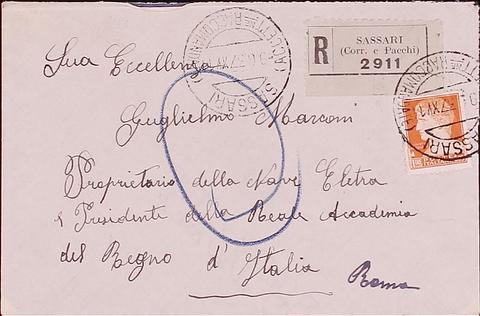 R
SASSARI
(Corr. e Pacchi)
2911
Sua Eccellenza
Guglielmo Marconi
Proprietario della Nave Eletra
e Presidente della Reale Accademia
del Regno d'Italia
Roma
SASSARI
SASSARI